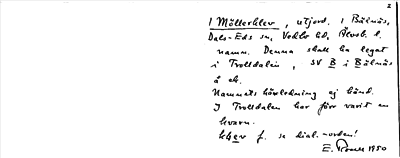 2
1 Möllerklev, utjord. 1 Bälnäs,
Dals-Eds sn, Vedbo hd, Älvsb. l.
namn. Denna skall ha legat
i Trolldalen, SV B i Bälnäs
å ek.
Namnets härledning ej känd.
I Trolldalen har förr varit en
kvarn.
f. se dial.-orden!
E. 1950